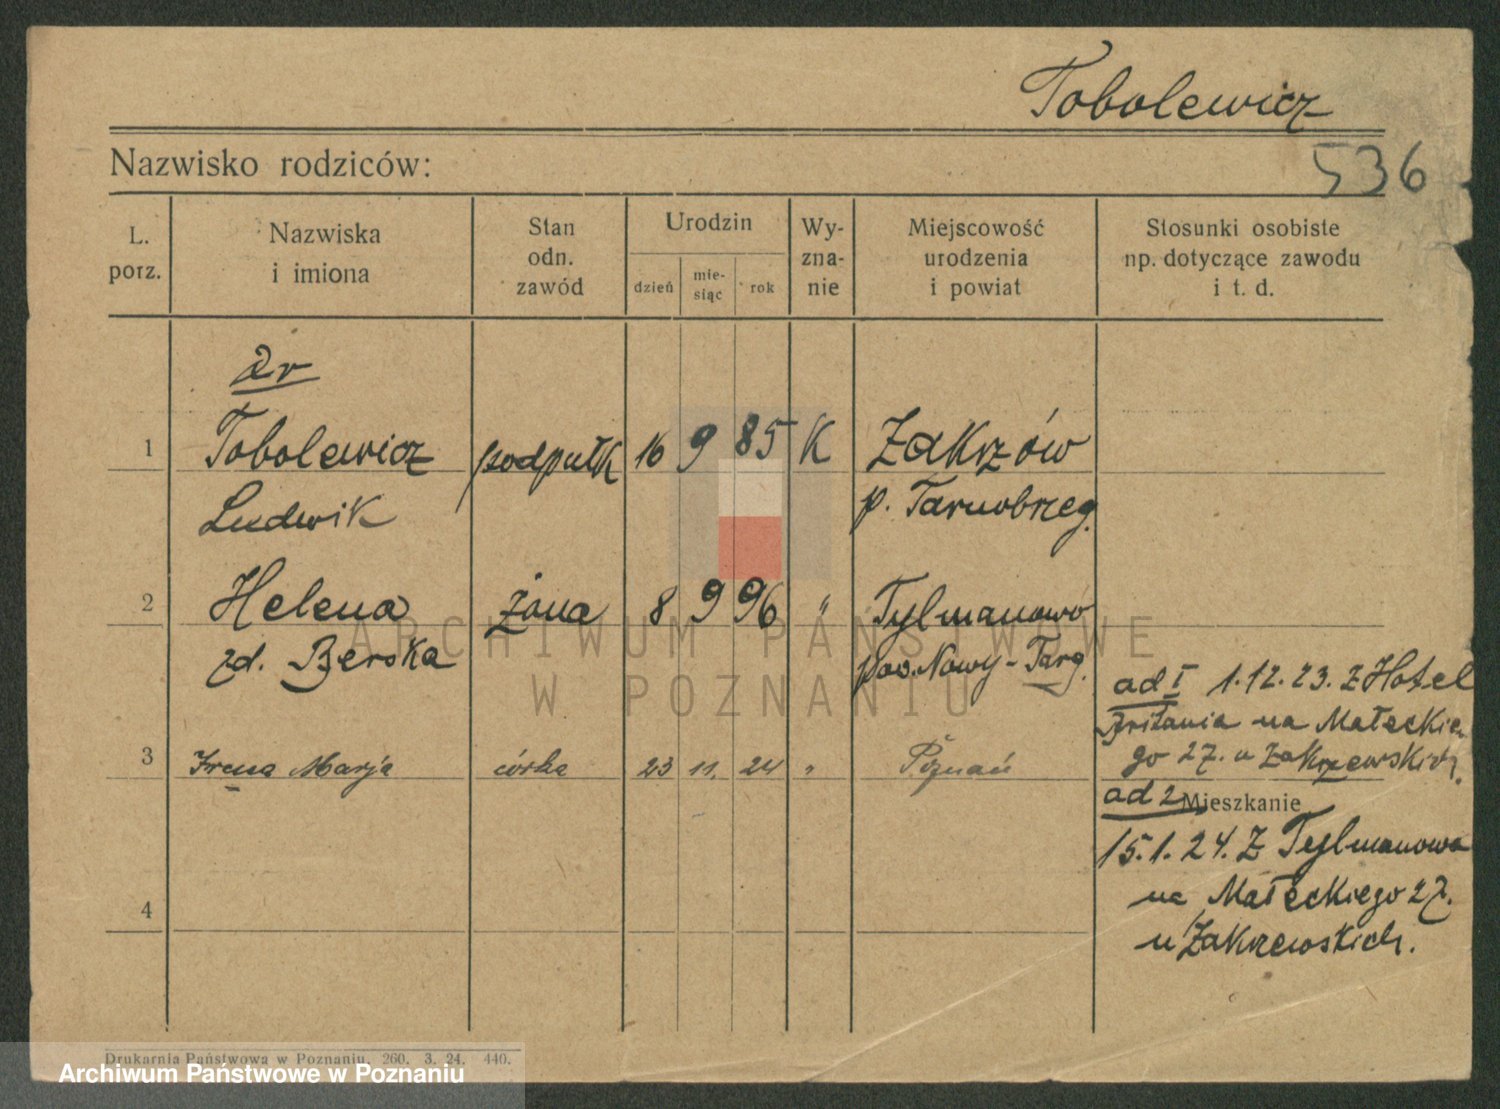 Tobolewicz
Nazwisko rodziców:
536
L. porz.
Nazwiska i imiona
Stan odn. zawód
Urodzin
dzień
mie-
siąc
rok
Wy-
zna-
nie
Miejscowość urodzenia i powiat
Stosunki osobiste
np. dotyczące zawodu
i t. d.
Dr
1 Tobolewicz podpułk 16 9 85 K Zakrzów
Ludwik p. Tarnobrzeg.
2 Helena żona 8 9 96 " Tylmanowo
zd. Berska pow. Nowy-Targ.
ad I 1.12.23. z Hotel
Britania na Małeckie
3 Irena Marja córka 23 11. 24 " Poznań
go 27. u Zakrzewskich.
ad 2 Mieszkanie
15.1.24. z Tylmanowa
na Małeckiego 27.
4
u Zakrzewskich.
Drukarnia Państwowa w Poznaniu. 260. 3. 24. 440.
ARCHIWUM PAŃSTWOWE
W POZNANIU
Archiwum Państwowe w Poznaniu